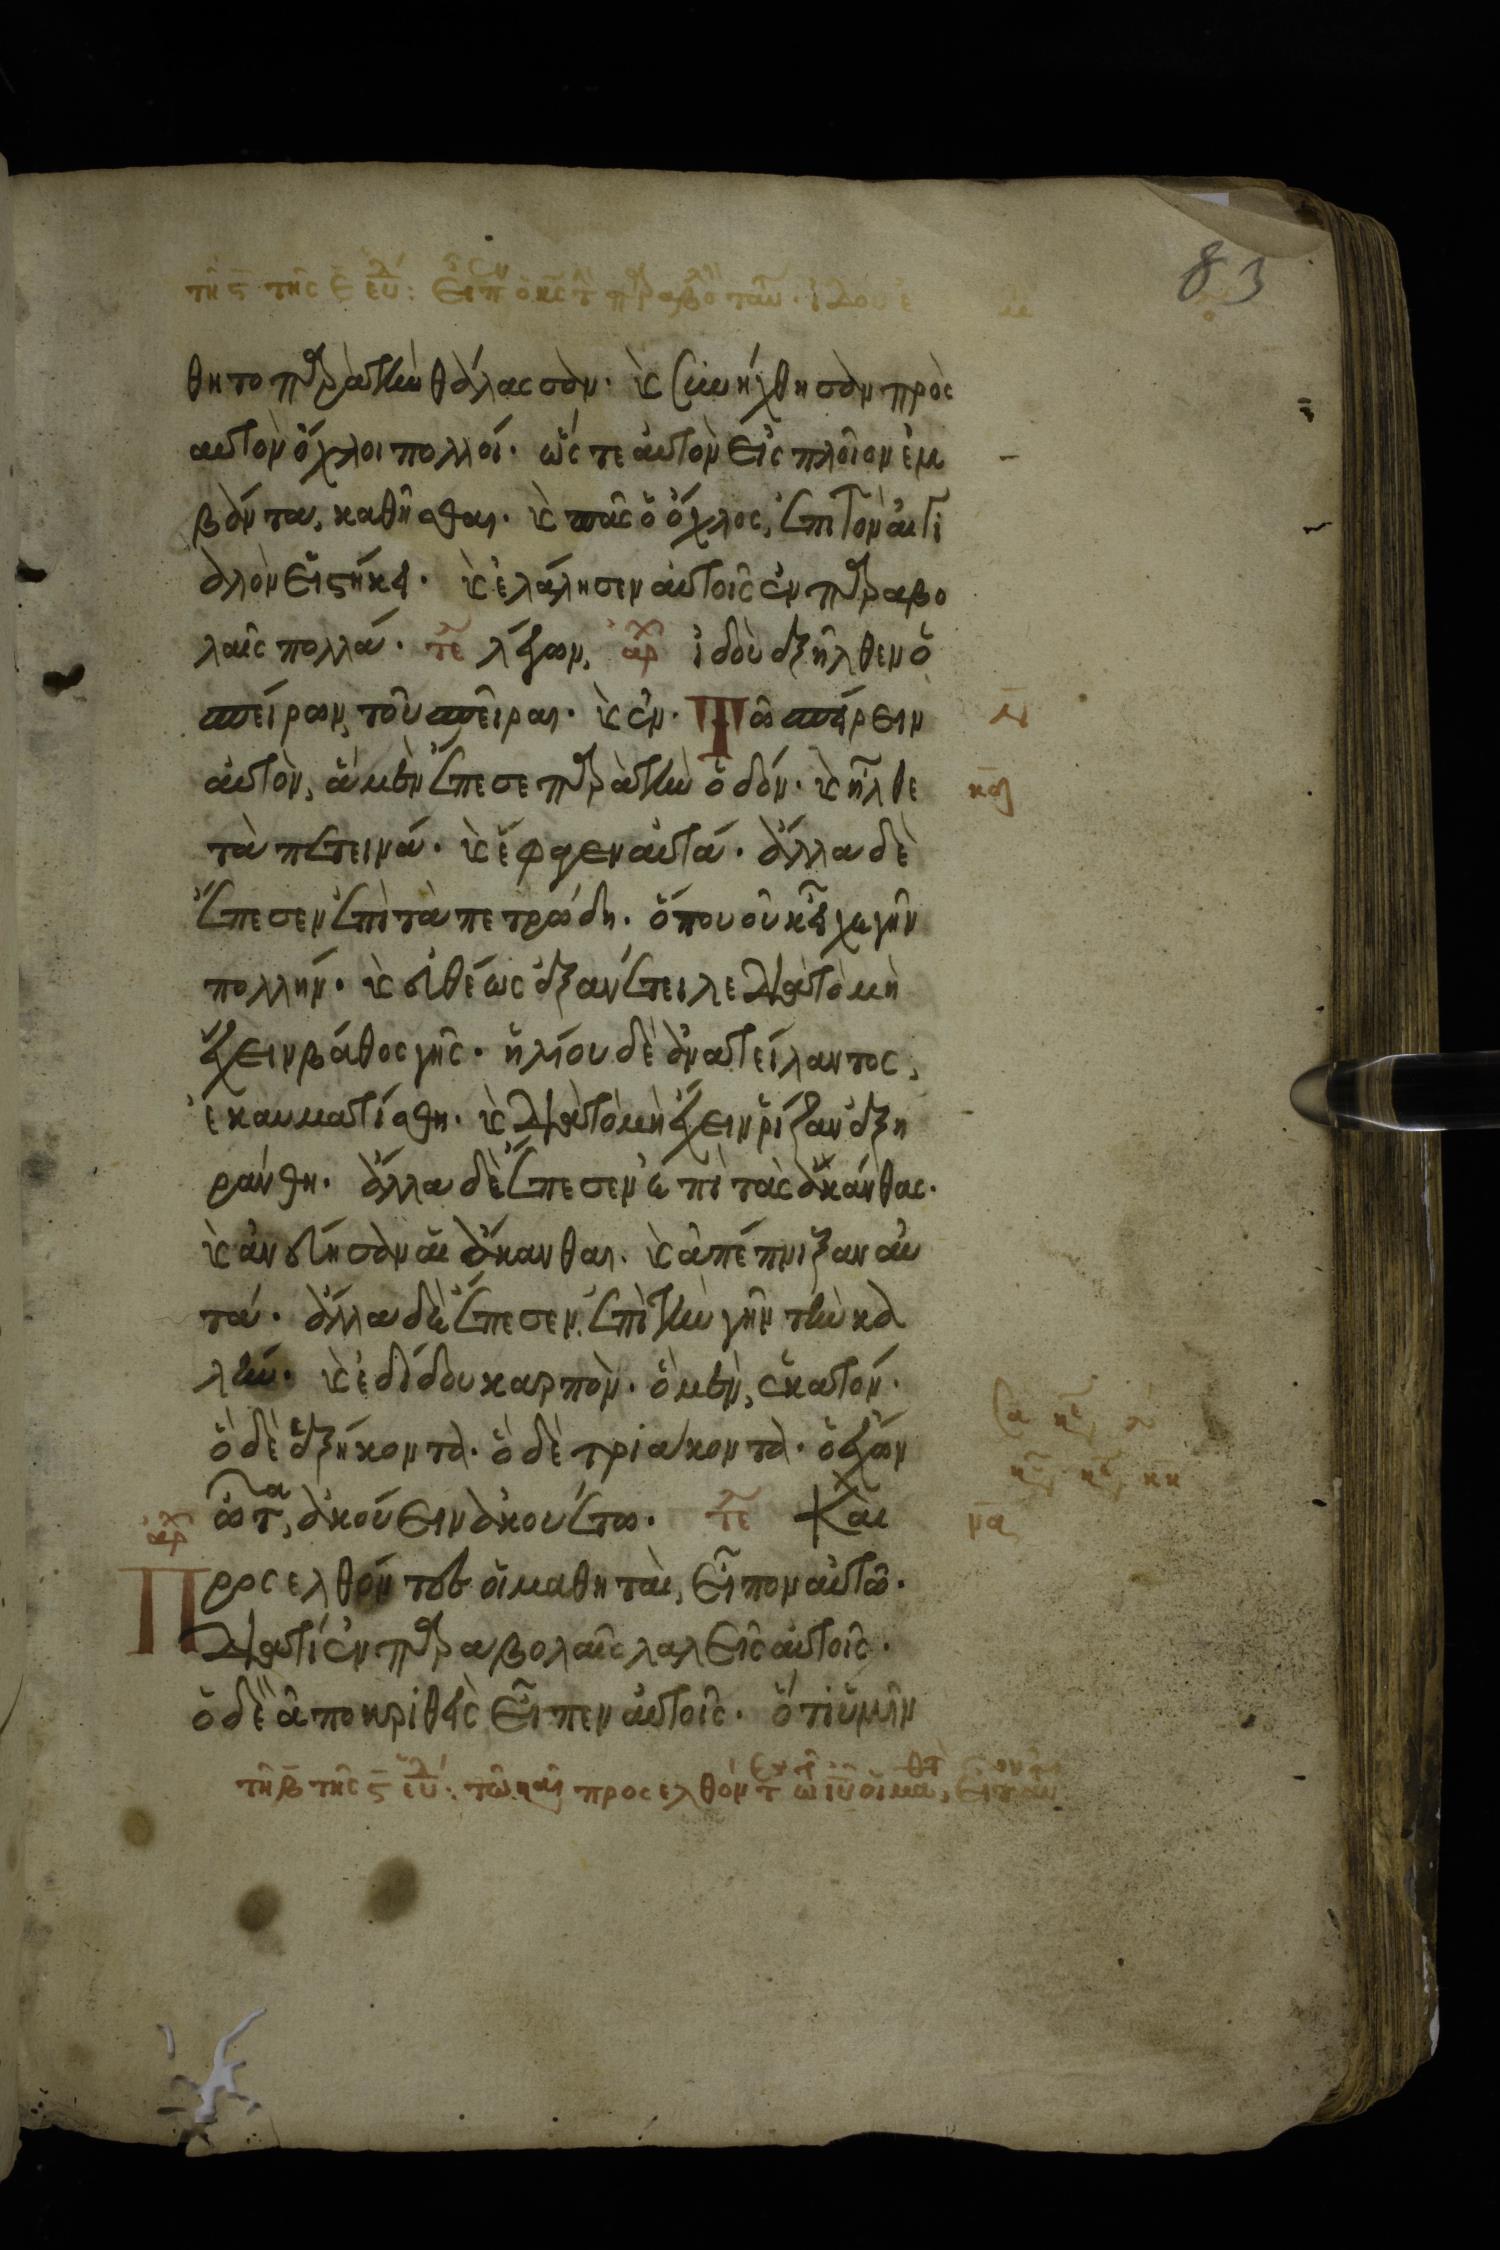 83
θητο παρὰ τὴν θάλασσαν. καὶ συνήχθησαν πρὸς
αὐτὸν ὄχλοι πολλοί. ὥστε αὐτὸν εἰς πλοῖον ἐμ
βάντα, καθῆσθαι. καὶ πᾶς ὁ ὄχλος, ἐπὶ τὸν αἰγι
αλὸν εἱστήκει. καὶ ἐλάλησεν αὐτοῖς ἐν παραβο
λαῖς πολλά. τε λέγων, αρχ ἰδοὺ ἐξῆλθεν ὁ
σπείρων, τοῦ σπεῖραι. καὶ ἐν. Τῶ σπείρειν
αὐτὸν, ἃ μὲν ἔπεσε παρὰ τὴν ὁδόν. καὶ ἦλθε
τὰ πετεινά. καὶ ἔφαγεν αὐτά. ἄλλα δὲ
ἔπεσεν ἐπὶ τὰ πετρώδη. ὅπου οὐκ εἶχε γῆν
πολλήν. καὶ εὐθέως ἐξανέτειλε διὰ τὸ μὴ
ἔχειν βάθος γῆς. ἡλίου δὲ ἀνατείλαντος,
ἐκαυματίσθη. καὶ διὰ τὸ μὴ ἔχειν ῥίζαν ἐξη
ράνθη. ἄλλα δὲ ἔπεσεν ἐπὶ τὰς ἀκάνθας.
καὶ ἀνέβησαν αἱ ἄκανθαι. καὶ ἀπέπνιξαν αὐ
τά. ἄλλα δὲ ἔπεσεν ἐπὶ τὴν γῆν τὴν κα
λήν. καὶ ἐδίδου καρπὸν. ὃ μὲν, ἑκατόν.
ὃ δὲ ἑξήκοντα. ὃ δὲ τριάκοντα. ὁ ἔχων
ὦτα, ἀκούειν ἀκουέτω. τε Καὶ
αρχ Προσελθόντες οἱ μαθηταὶ, εἶπον αὐτῶ.
διατί ἐν παραβολαῖς λαλεῖς αὐτοῖς.
ὁ δὲ ἀποκριθεὶς εἶπεν αὐτοῖς. ὅτι ὑμῖν